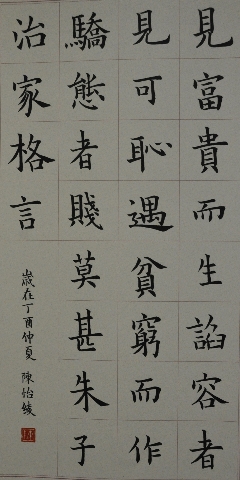 見富貴而生諂容者
見可恥遇貧窮而作
驕態者賤莫甚朱子
治家格言
歲在丁酉仲夏 陳怡綾